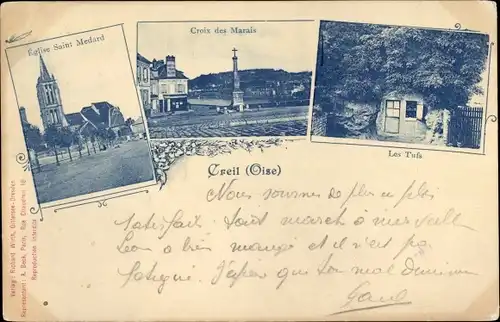 Eglise Saint Medard
Croix des Marais
Les Tufs
Creil (Oise)
Nous sommes de plus en plus
satisfait. Tout marche à merveille
Léon a bien mangé et il n'est pas
fatigué. J'espère que ton mal diminue
Verlag: Richard Wirth, Gittersee-Dresden
Représentant: A. Beck, Paris, Rue
Reproduction interdite